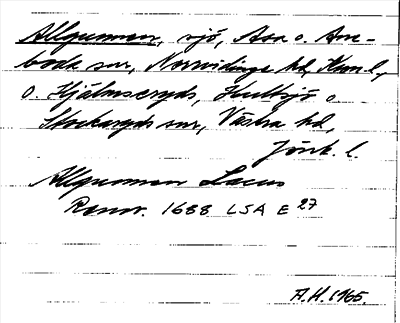 Allgunnen, sjö, Asa o. Ane-
boda snr, Norrvidinge hd, Kron.l.,
o. Hjälmseryds, Hultsjö o
Stockaryds snr, Västra hd,
Jönk. l.
Allgunnen Lacus
Rannv. 1688 LSA E 27
A.H. 1965.